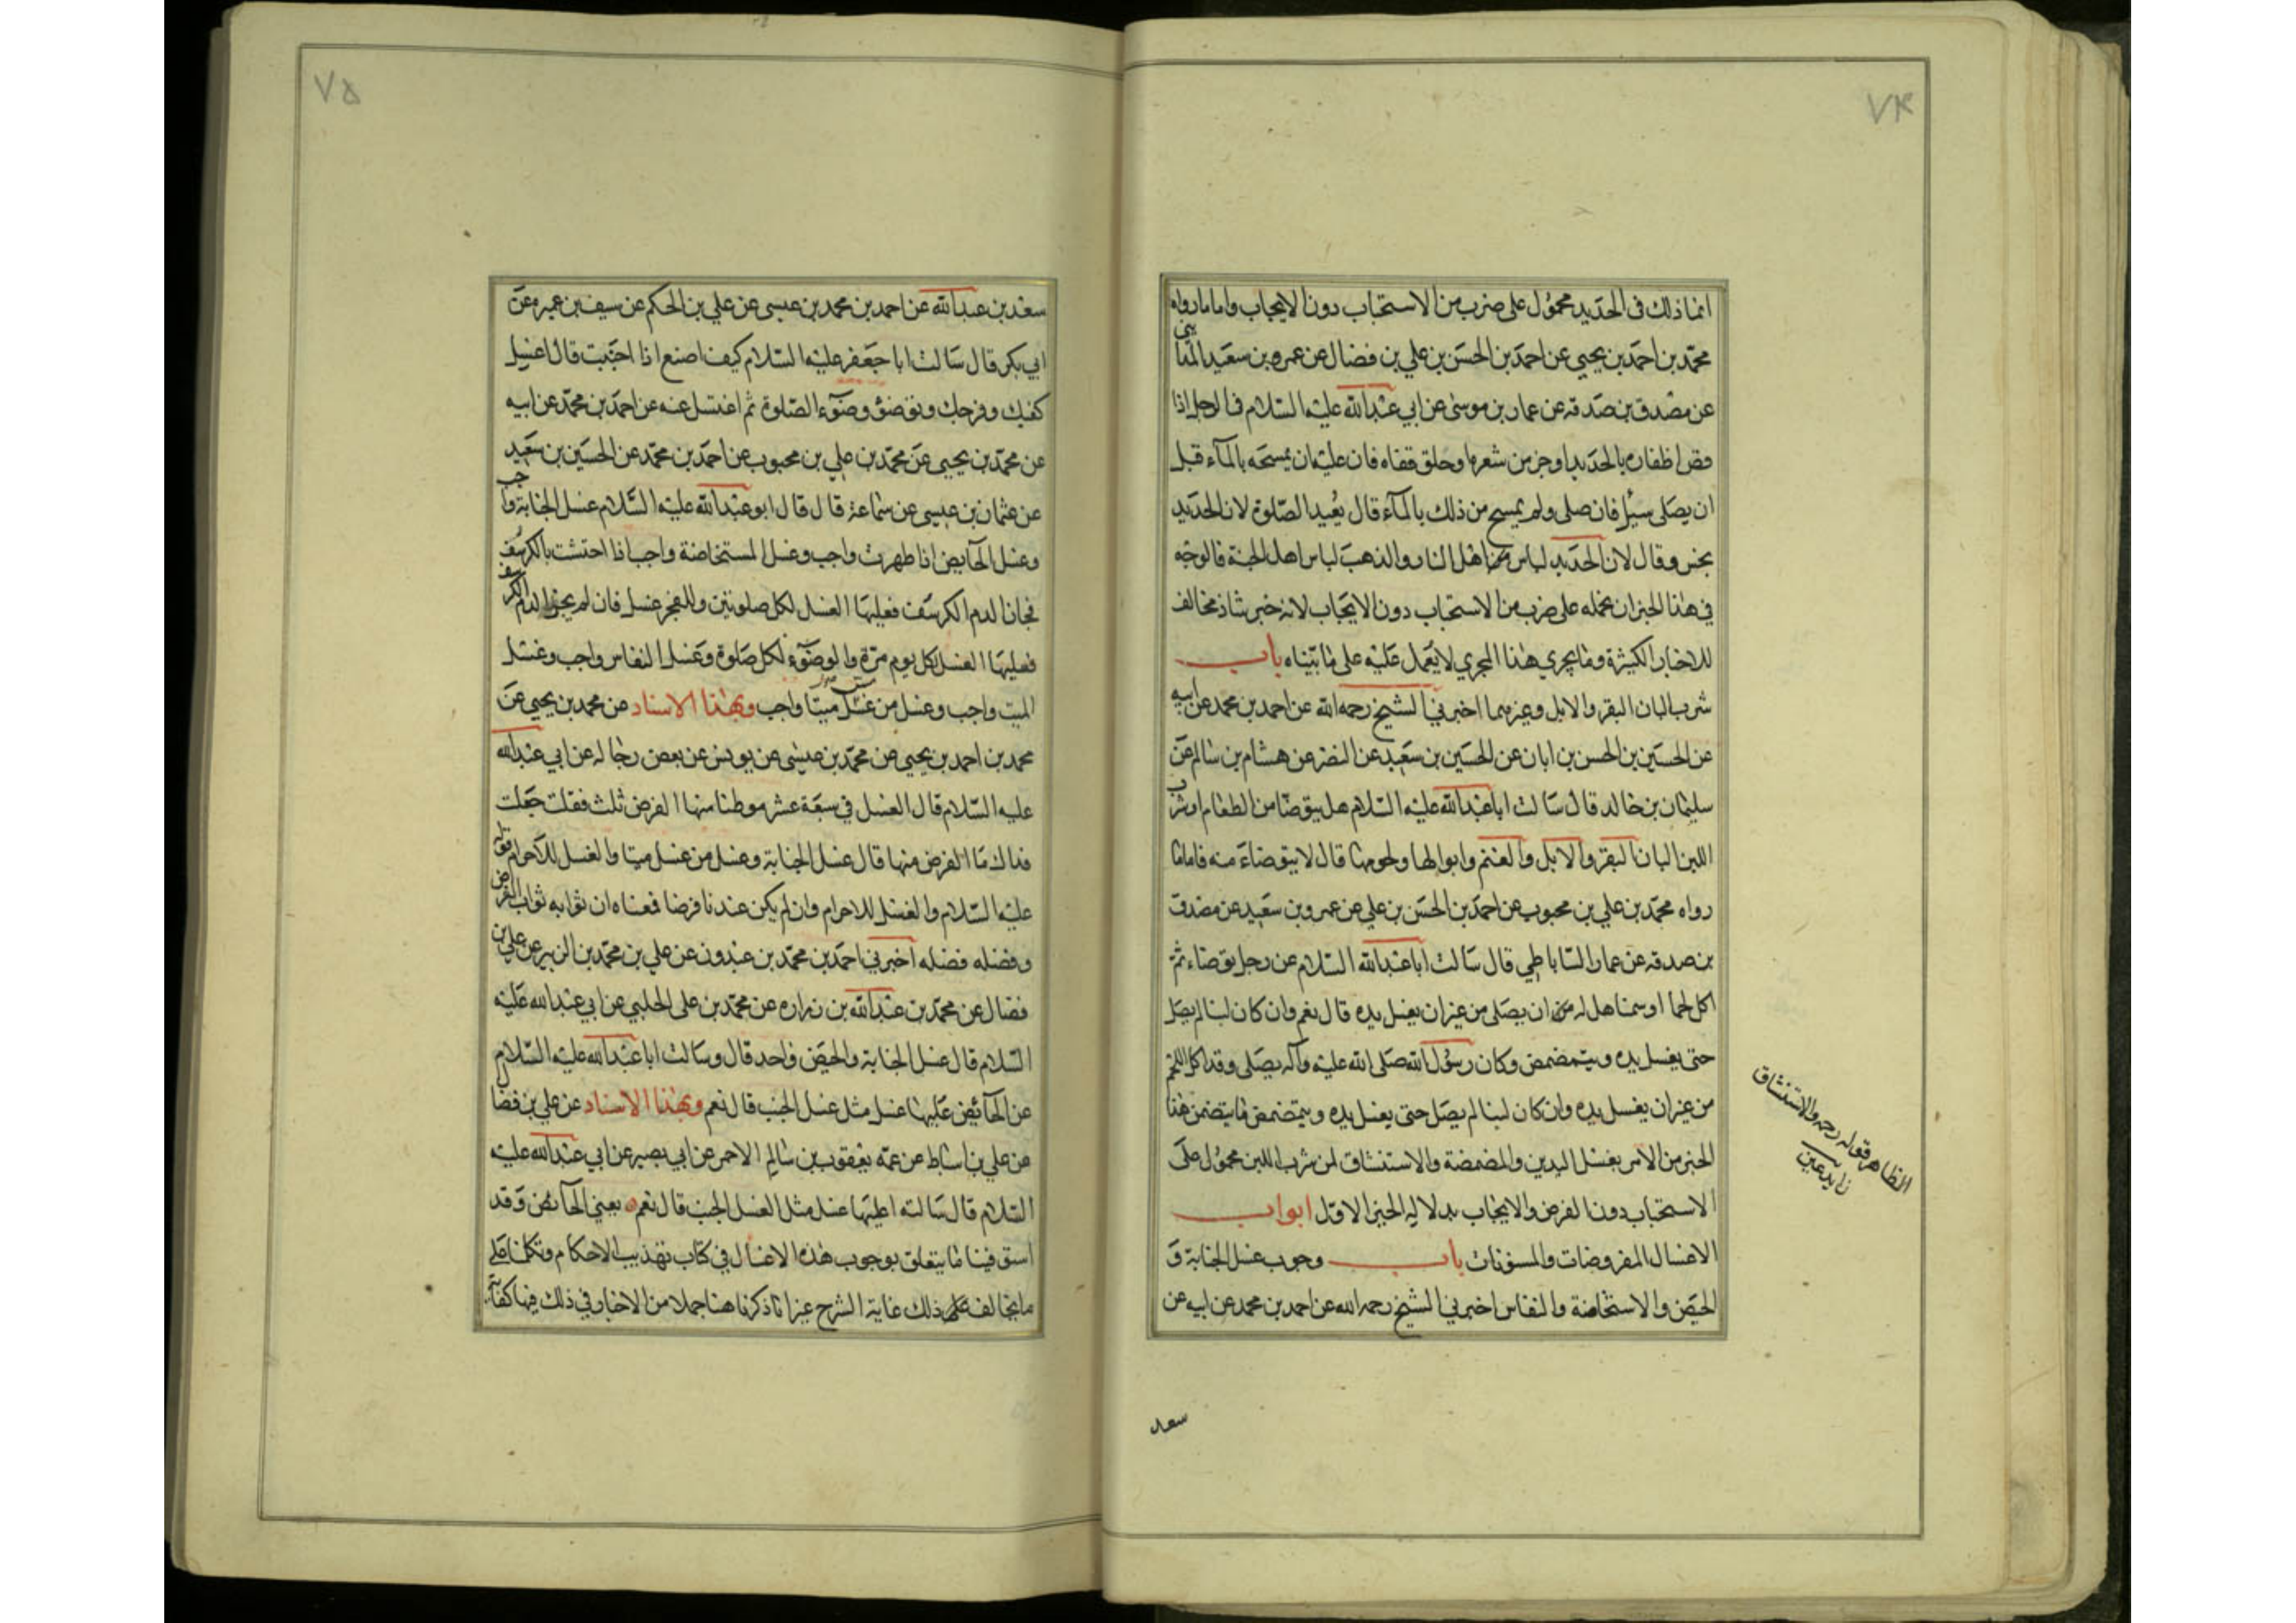 ٧٤
انما ذلك فى الحديد محمول على ضرب من الاستحباب دون الايجاب واما ما رواه
محمد بن احمد بن يحيى عن احمد بن الحسن بن علي بن فضال عن عمرو بن سعيد المدايني
عن مصدق بن صدقه عن عمار بن موسى عن ابي عبدالله عليه السلام في الرجل اذا
قص اظفاره بالحديد او جز من شعره او حلق قفاه فان عليه ان يمسحه بالمآء قبل
ان يصلى سئل فان صلى ولم يمسح من ذلك بالمآء قال يعيد الصلوة لان الحديد
نجس وقال لان الحديد لباس اهل النار والذهب لباس اهل الجنة فالوجه
في هذا الخبر ان نحمله على ضرب من الاستحباب دون الايجاب لانه خبر شاذ مخالف
للاخبار الكثيرة وما يجري هذا المجري لا يعمل عليه على ما بيناه باب
شرب البان البقر والابل وغيرهما اخبرني الشيخ رحمه الله عن احمد بن محمد عن ابيه
عن الحسين بن الحسن بن ابان عن الحسين بن سعيد عن النضر عن هشام بن سالم عن
سليمان بن خالد قال سالت ابا عبدالله عليه السلام هل يتوضا من الطعام او شرب
اللبن البان البقر والابل والغنم وابوالها ولحومها قال لا يتوضاء منه فاما ما
رواه محمد بن علي بن محبوب عن احمد بن الحسن بن علي عن عمرو بن سعيد عن مصدق
بن صدقه عن عمار الساباطي قال سالت ابا عبدالله السلام عن رجل توضاء ثم
اكل لحما او سمنا هل له ان يصلى من غير ان يغسل يده قال نعم وان كان لبنا لم يصل
حتى يغسل يده ويتمضمض وكان رسول الله صلى الله عليه وآله يصلى وقد اكل اللحم
من غير ان يغسل يده وان كان لبنا لم يصل حتى يغسل يده ويتمضمض فما يتضمن هذا
الخبر من الامر بغسل اليدين والمضمضة والاستنشاق لمن شرب اللبن محمول على
الاستحباب دون الفرض والايجاب بدلاله الخبر الاول ابواب
الاغسال المفروضات والمسنونات باب وجوب غسل الجنابة و
الحيض والاستحاضة والنفاس اخبرني الشيخ رحمه الله عن احمد بن محمد عن ابيه عن
الظاهر قوله رحمه والاستنشاق
زايد عين
سعد
٧٥
سعد بن عبدالله عن احمد بن محمد بن عيسى عن علي بن الحكم عن سيف بن عميره عن
ابي بكر قال سالت ابا جعفر عليه السلام كيف اصنع اذا اجنبت قال اغسل
كفيك وفرجك وتوضؤ وضوء الصلوة ثم اغتسل عنه عن احمد بن محمد عن ابيه
عن محمد بن يحيى عن محمد بن علي بن محبوب عن احمد بن محمد عن الحسين بن سعيد
عن عثمان بن عيسى عن سماعة قال قال ابو عبدالله عليه السلام غسل الجنابة واجب
وغسل الحايض اذا طهرت واجب وغسل المستحاضة واجب اذا احتشت بالكرسف
فجاز الدم الكرسف فعليها الغسل لكل صلوتين وللفجر غسل فان لم يجز الدم الكرسف
فعليها الغسل كل يوم مرة والوضوء لكل صلوة وغسل النفاس واجب وغسل
الميت واجب وغسل من غسل ميتا واجب وبهذا الاسناد عن محمد بن يحيى عن
محمد بن احمد بن يحيى عن محمد بن عيسى عن يونس عن بعض رجاله عن ابي عبدالله
عليه السلام قال الغسل في سبعة عشر موطنا منها الفرض ثلث فقلت جعلت
فداك ما الفرض منها قال غسل الجنابة وغسل من غسل ميتا والغسل للاحرام قوله
عليه السلام والغسل للاحرام وان لم يكن عندنا فرضا فمعناه ان ثوابه ثواب الفرض
وفضله فضله اخبرني احمد بن محمد بن عبدون عن علي بن محمد بن الزبير عن علي بن
فضال عن محمد بن عبدالله بن زراره عن محمد بن على الحلبي عن ابي عبدالله عليه
السلام قال غسل الجنابة والحيض واحد قال وسالت ابا عبدالله عليه السلام
عن الحائض عليها غسل مثل غسل الجنب قال نعم وبهذا الاسناد عن علي بن فضا
عن علي بن اسباط عن عمه يعقوب بن سالم الاحمر عن ابي بصير عن ابي عبدالله عليه
السلام قال سالته اعليها غسل مثل الغسل الجنب قال نعم يعني الحائض وقد
استوفينا ما يتعلق بوجوب هذه الاغسال في كتاب تهذيب الاحكام وتكلمنا على
ما يخالف ذلك غاية الشرح غير انا ذكرنا هنا جملا من الاخبار في ذلك فيها كفاية